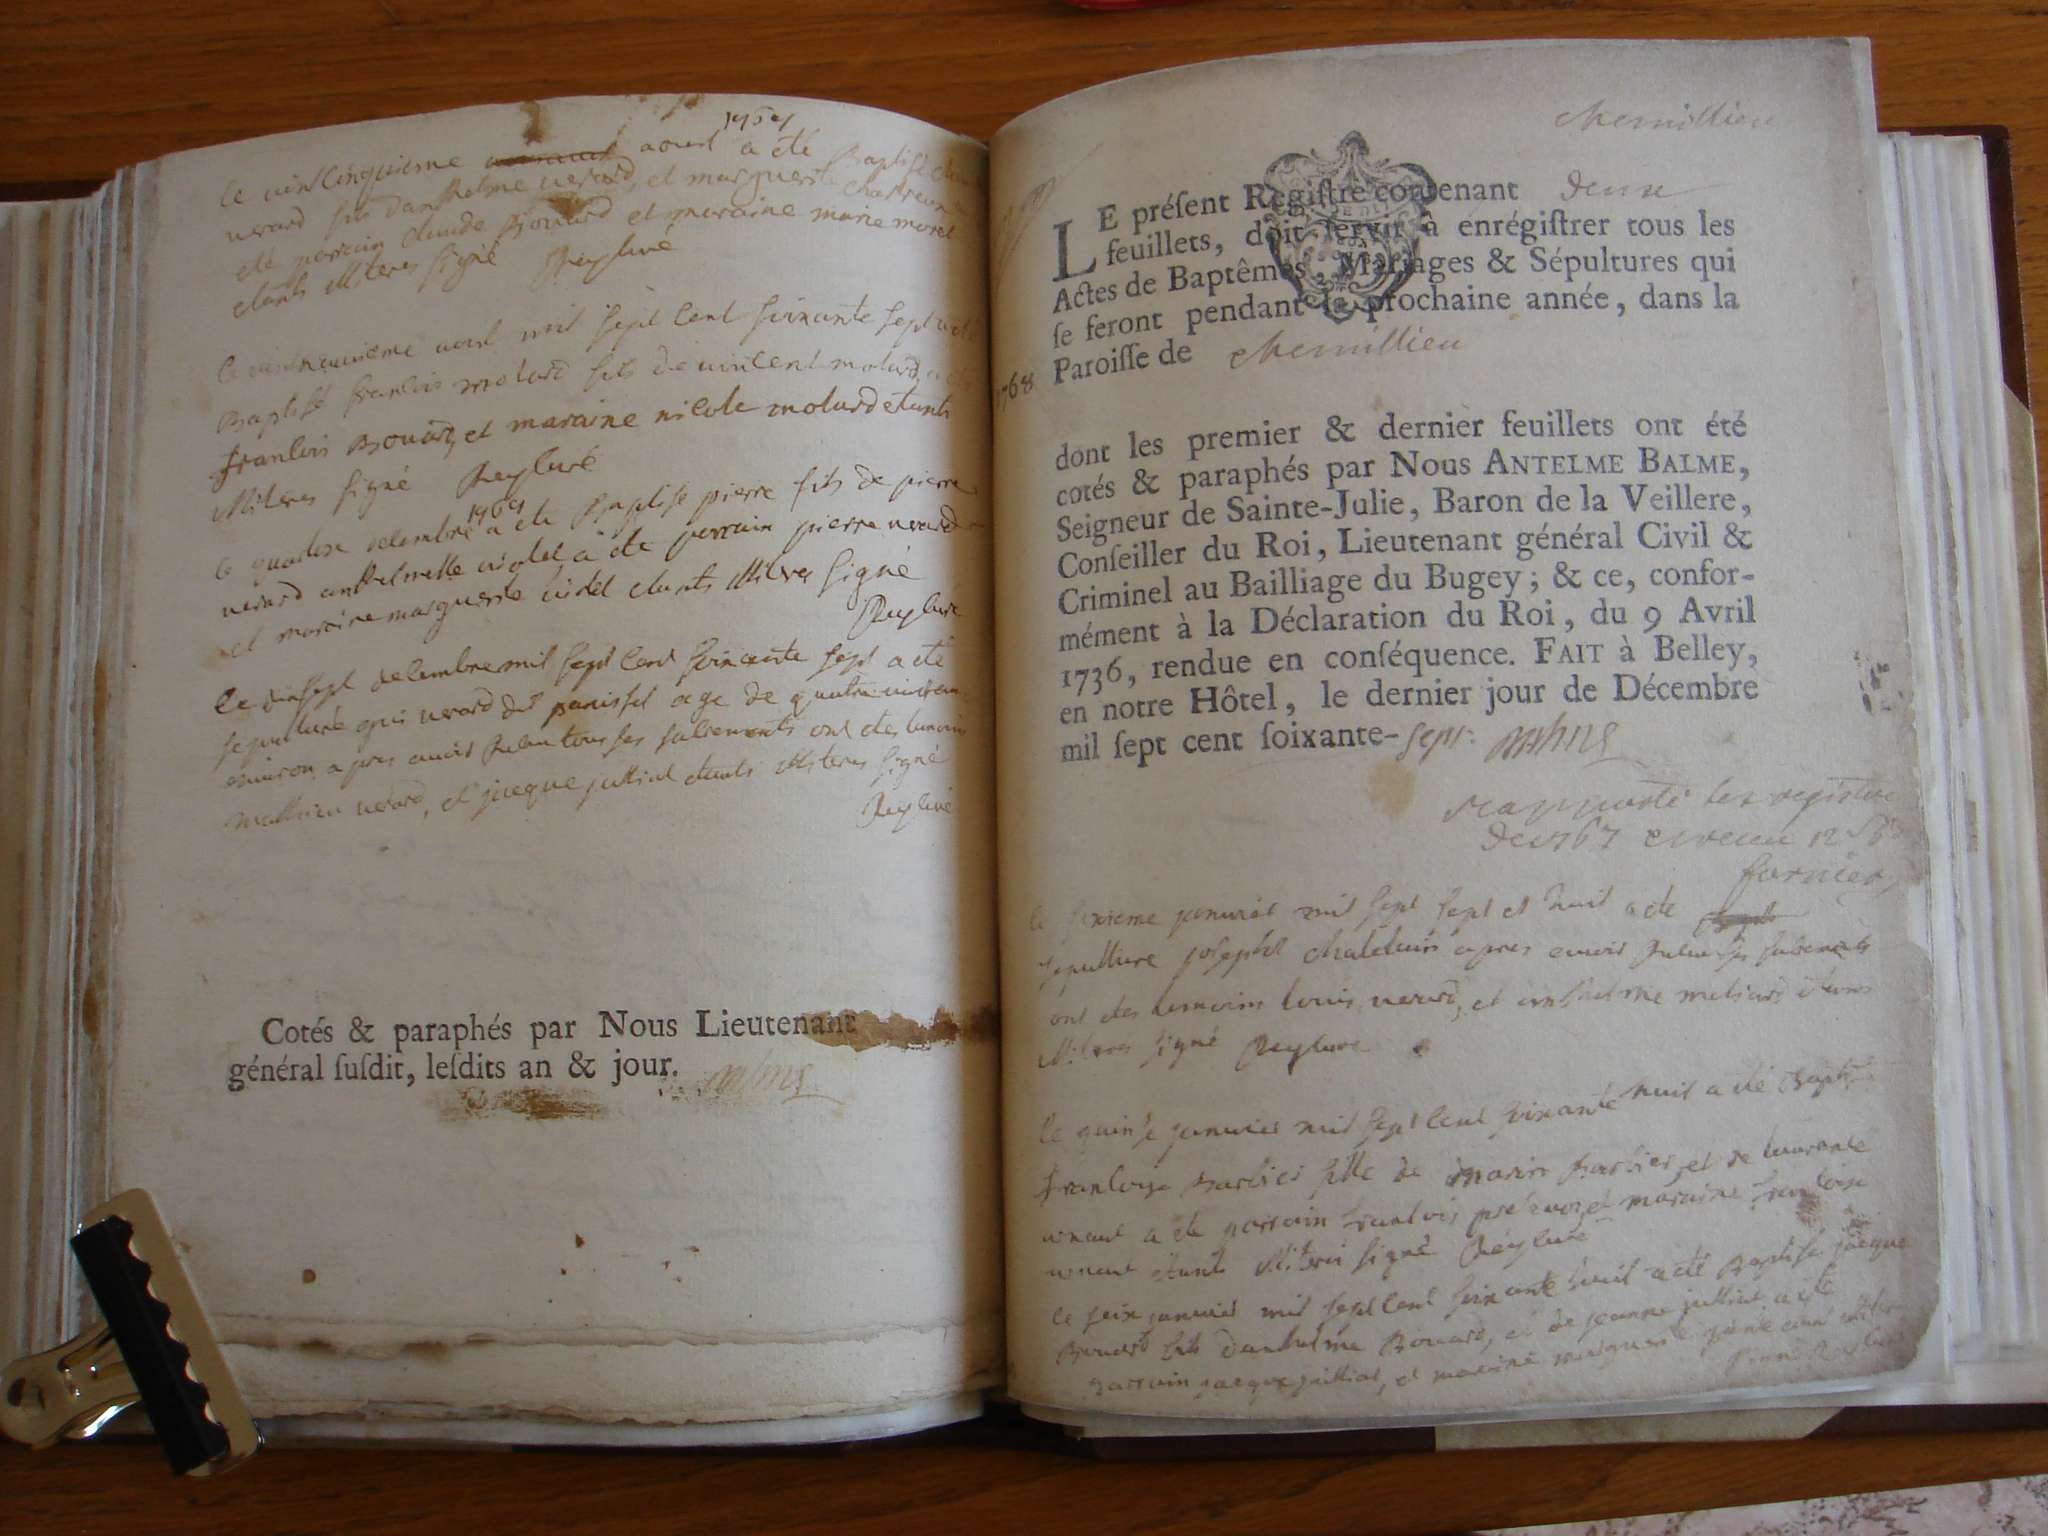 1767
le vintcinquieme aoust a été Baptisé
verard fils danthelme verard, et marguerite
été parrain claude Bouard et maraine marie morel
étants illiteres signé Rey curé
le vintneuvieme aout mil sept cent soixante sept a été
Baptisé francois molard fils de vincent molard, a été
francois Bouard, et maraine nicole molard étants
illiteres signé Rey curé
1767
le quatorse decembre a été Baptise pierre fils de pierre
verard a été parrain pierre verard
et maraine marguerite étants illiteres signé
Rey curé
le dixsept decembre mil sept cent soixante sept a été
sepulturé verard dit panisset age de quatrevint ans
environ apres avoir tous ses sacrements ont étés temoins
mathieu verard, et jacque julliat étants illiteres signé
Rey curé
Cotés & paraphés par Nous Lieutenant
général susdit, lesdits an & jour.
chemillieu
LE préſent Regiſtre contenant deux
feuillets, doit ſervir à enrégiſtrer tous les
Actes de Baptêmes, Mariages & Sépultures qui
ſe feront pendant la prochaine année, dans la
Paroiſſe de chemillieu
1768
dont les premier & dernier feuillets ont été
cotés & paraphés par Nous ANTELME BALME,
Seigneur de Sainte-Julie, Baron de la Veillere,
Conſeiller du Roi, Lieutenant général Civil &
Criminel au Bailliage du Bugey; & ce, confor-
mément à la Déclaration du Roi, du 9 Avril
1736, rendue en conſéquence. FAIT à Belley,
en notre Hôtel, le dernier jour de Décembre
mil ſept cent ſoixante-sept
rapporté les registre
de 1767 et receu 12
le sixieme janvier mil sept sept et huit a été
sepulture joseph apres avoir sacrements
ont étés temoins louis verard, et anthelme étants
illiteres signé Rey curé
le quinse janvier mil sept cent soixante huit a été Baptisé
francoise Barbier fille de marin Barbier, et de laurante
a été parrain francois et maraine francoise
étants illiteres signé Rey curé
le seix janvier mil sept cent soixante huit a été Baptisé jacque
Bouard fils danthelme Bouard, et de jeanne julliat a été
parrain jacque julliat, et maraine marguerite